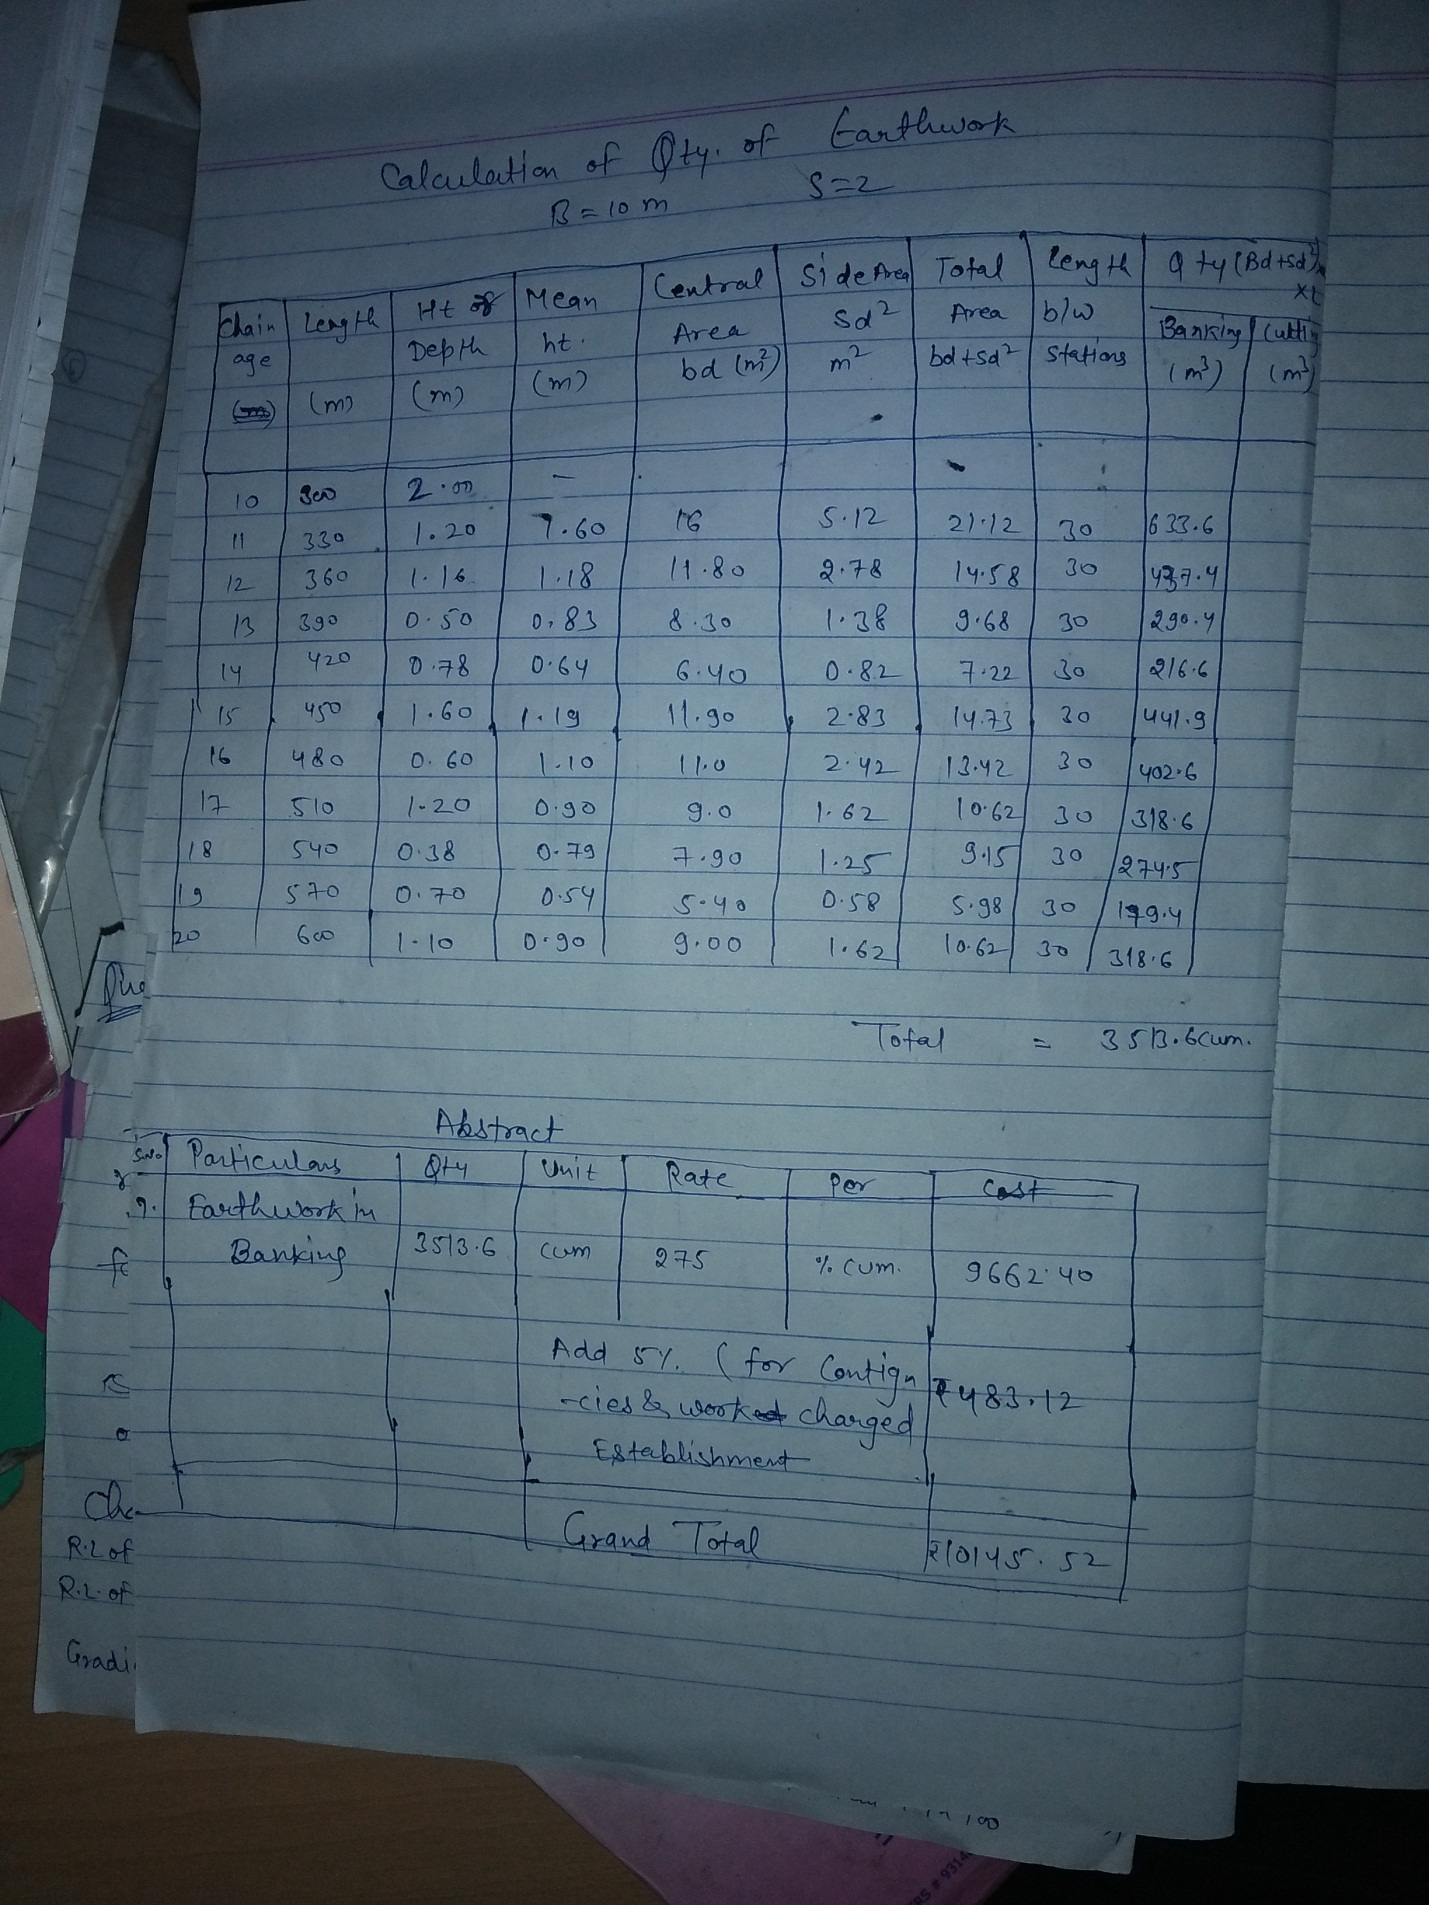 Calculation of Qty. of Earthwork
B = 10 m S=2
Chain age (m) | Length (m) | Ht of Depth (m) | Mean ht. (m) | Central Area bd (m²) | Side Area Sd² m² | Total Area bd+Sd² | Length b/w Stations | Qty (Bd+Sd²)×L Banking (m³) | Cutting (m³)
10 300 2.00 —
11 330 1.20 1.60 16 5.12 21.12 30 633.6
12 360 1.16 1.18 11.80 2.78 14.58 30 437.4
13 390 0.50 0.83 8.30 1.38 9.68 30 290.4
14 420 0.78 0.64 6.40 0.82 7.22 30 216.6
15 450 1.60 1.19 11.90 2.83 14.73 30 441.9
16 480 0.60 1.10 11.0 2.42 13.42 30 402.6
17 510 1.20 0.90 9.0 1.62 10.62 30 318.6
18 540 0.38 0.79 7.90 1.25 9.15 30 274.5
19 570 0.70 0.54 5.40 0.58 5.98 30 179.4
20 600 1.10 0.90 9.00 1.62 10.62 30 318.6
Total = 3513.6 cum.
Abstract
S.No. Particulars Qty Unit Rate Per Cost
Earthwork in
Banking 3513.6 cum 275 % cum. 9662.40
Add 5%. (for Contign
-cies & work charged
Establishment
₹483.12
Grand Total ₹10145.52
Que
Cha
R.L of
R.L. of
Gradi